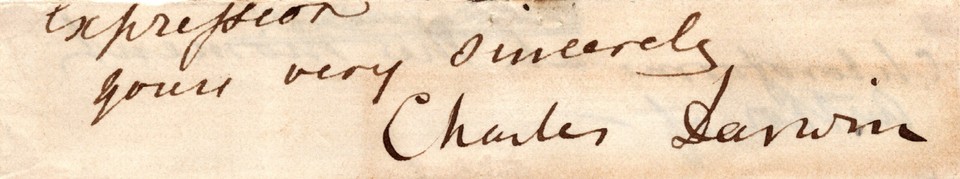 expression
yours very sincerely
Charles Darwin